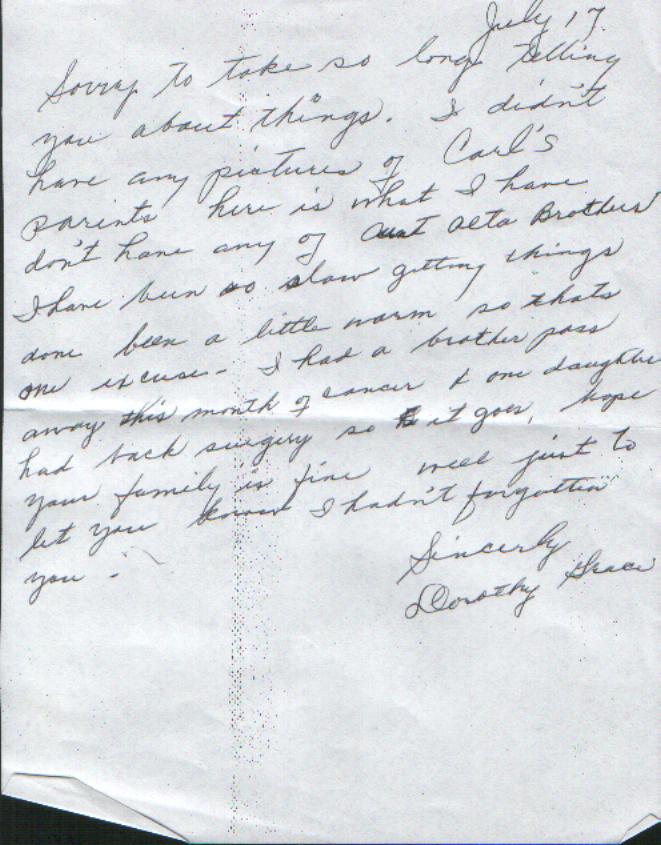 July 17
Sorry to take so long telling
you about things. I didn't
have any pictures of Carl's
parents here is what I have
don't have any of Aunt Alta Brothers
I have been so slow getting things
done been a little warm so thats
one excuse - I had a brother pass
away this month of cancer & one daughter
had back surgery so it goes, hope
your family is fine well just to
let you know I hadn't forgotten
you -
Sincerly
Dorothy